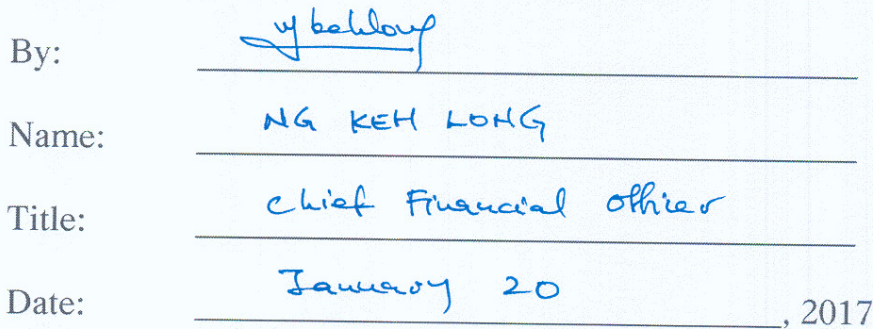 By: ng kehlong
Name: NG KEH LONG
Title: Chief Financial Officer
Date: January 20, 2017